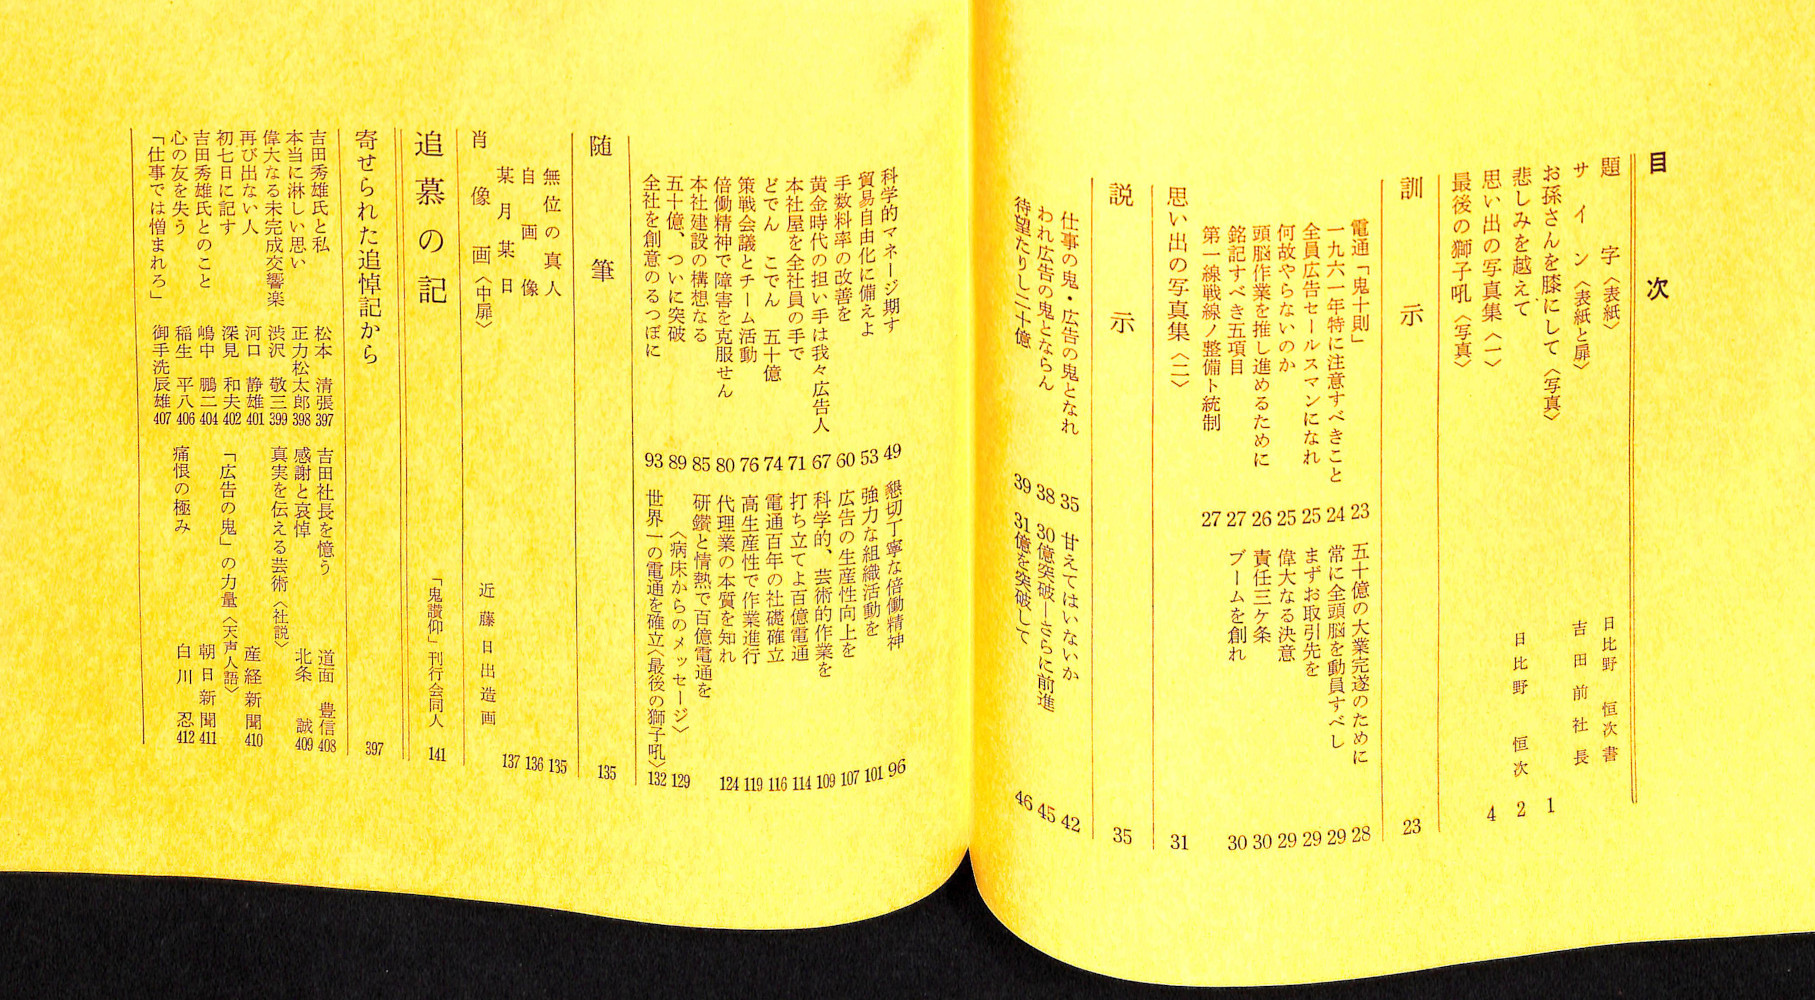 目次
題字〈表紙〉 日比野恒次書
サイン〈表紙と扉〉 吉田前社長
お孫さんを膝にして〈写真〉 1
悲しみを越えて 日比野恒次 2
思い出の写真集〈一〉 4
最後の獅子吼〈写真〉
訓示 23
電通「鬼十則」 23
一九六一年特に注意すべきこと 24
全員広告セールスマンになれ 25
何故やらないのか 25
頭脳作業を推し進めるために 26
銘記すべき五項目 27
第一線戦線ノ整備ト統制 27
五十億の大業完遂のために 28
常に全頭脳を動員すべし 29
まずお取引先を 29
偉大なる決意 29
責任三ケ条 30
ブームを創れ 30
思い出の写真集〈二〉 31
説示 35
仕事の鬼・広告の鬼となれ 35
われ広告の鬼とならん 38
待望たりし二十億 39
甘えてはいないか 42
30億突破—さらに前進 45
31億を突破して 46
科学的マネージ期す 49
貿易自由化に備えよ 53
手数料率の改善を 60
黄金時代の担い手は我々広告人 67
本社屋を全社員の手で 71
どでん こでん 五十億 74
策戦会議とチーム活動 76
倍働精神で障害を克服せん 80
本社建設の構想なる 85
五十億、ついに突破 89
全社を創意のるつぼに 93
懇切丁寧な倍働精神 96
強力な組織活動を 101
広告の生産性向上を 107
科学的、芸術的作業を 109
打ち立てよ百億電通 114
電通百年の社礎確立 116
高生産性で作業進行 119
代理業の本質を知れ 124
研鑽と情熱で百億電通を
〈病床からのメッセージ〉 129
世界一の電通を確立〈最後の獅子吼〉 132
随筆 135
無位の真人 135
自画像 136
某月某日 137
肖像画〈中扉〉 近藤日出造画
追慕の記 「鬼讃仰」刊行会同人 141
寄せられた追悼記から 397
吉田秀雄氏と私 松本清張 397
本当に淋しい思い 正力松太郎 398
偉大なる未完成交響楽 渋沢敬三 399
再び出ない人 河口静雄 401
初七日に記す 深見和夫 402
吉田秀雄氏とのこと 嶋中鵬二 404
心の友を失う 稲生平八 406
「仕事では憎まれろ」 御手洗辰雄 407
吉田社長を憶う 道面豊信 408
感謝と哀悼 北条誠 409
真実を伝える芸術〈社説〉 産経新聞 410
「広告の鬼」の力量〈天声人語〉 朝日新聞 411
痛恨の極み 白川忍 412